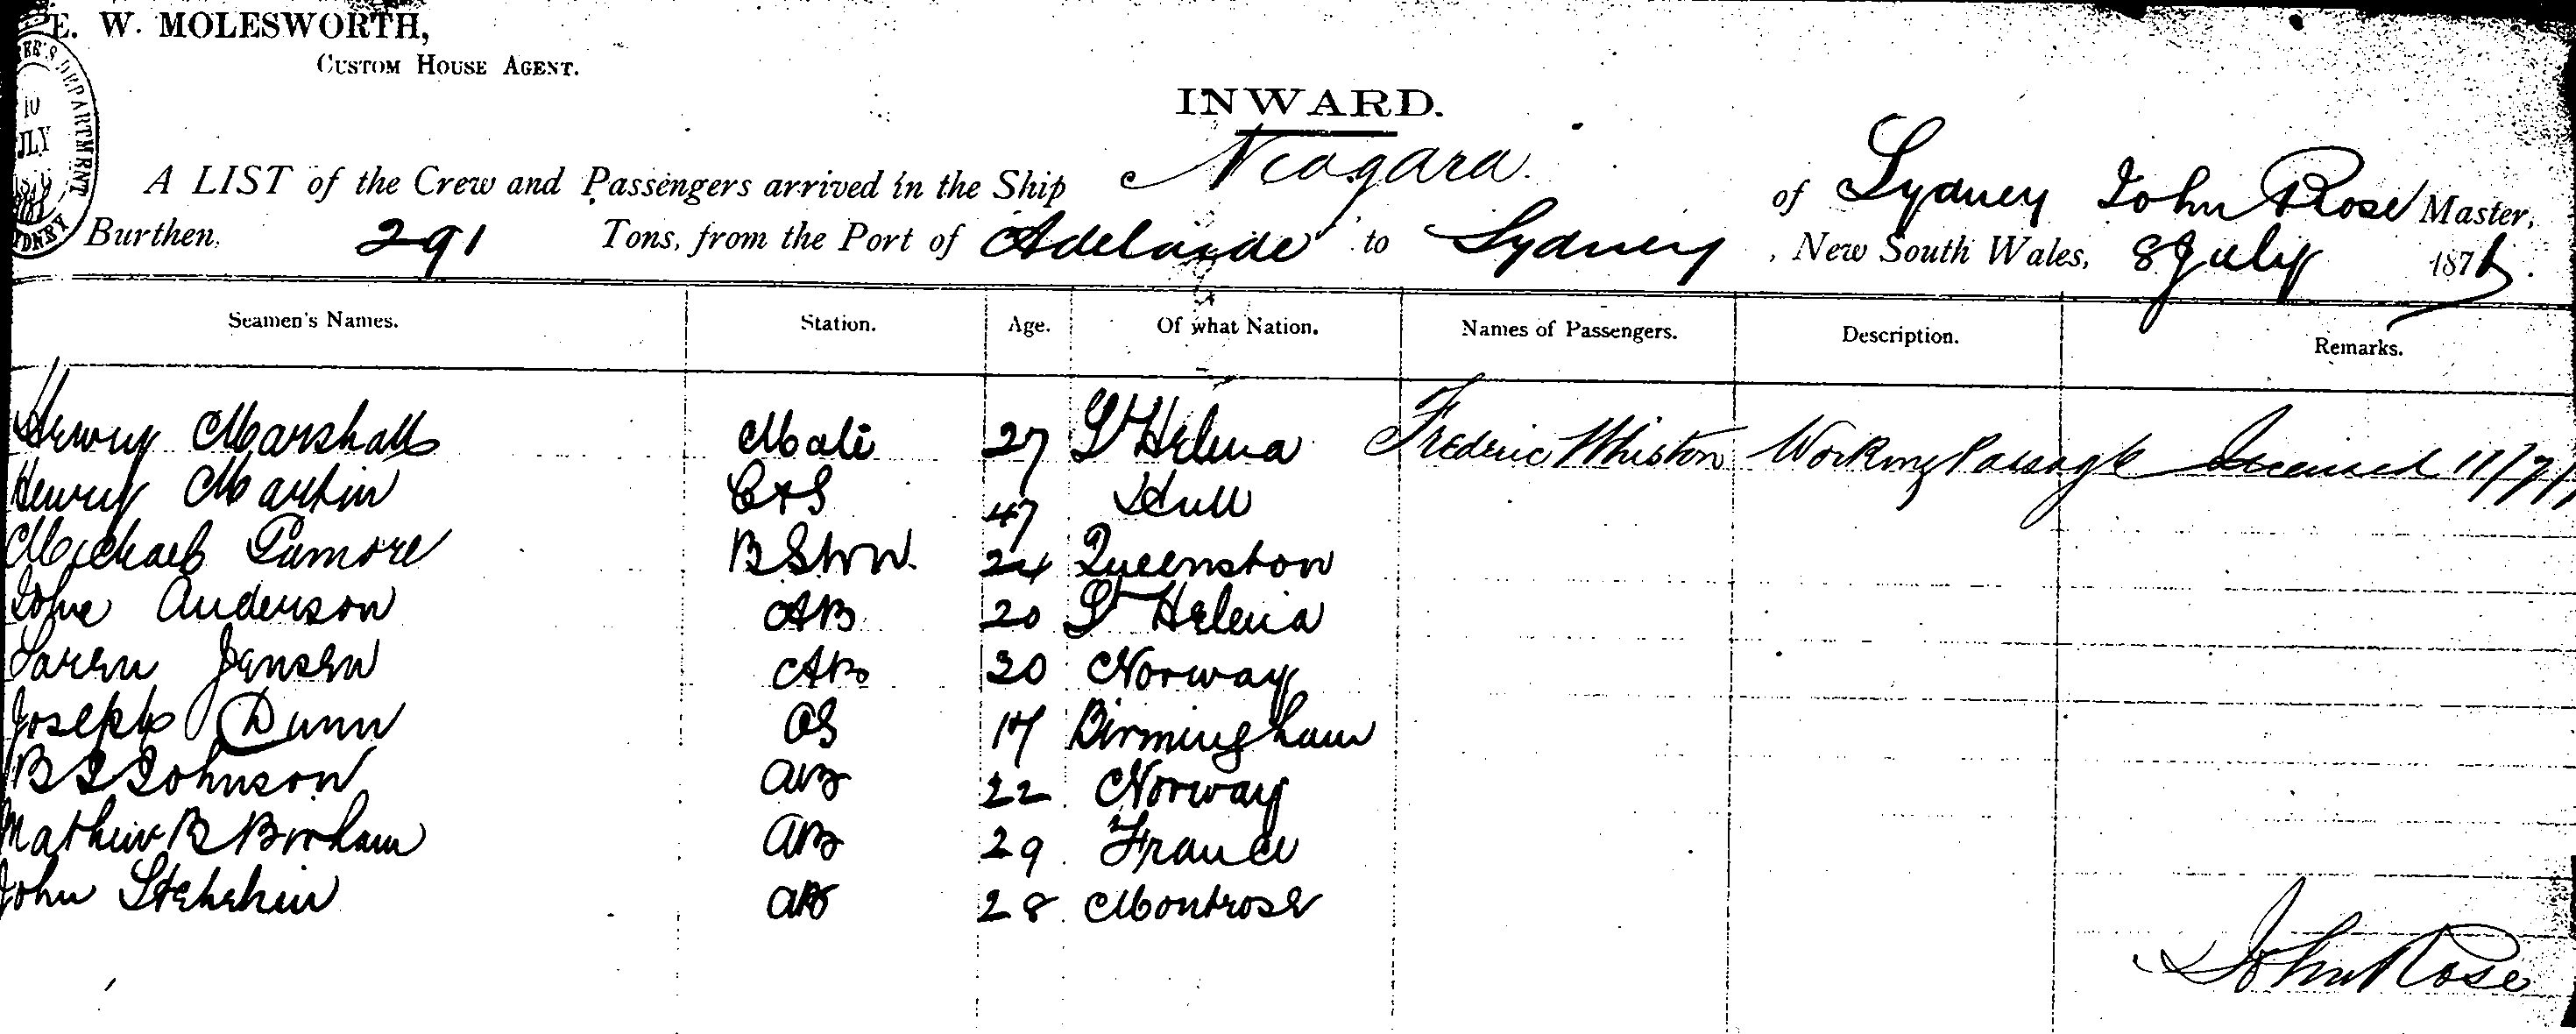 E. W. MOLESWORTH,
CUSTOM HOUSE AGENT.
DEPARTMENT
10
JLY
INWARD.
A LIST of the Crew and Passengers arrived in the Ship Niagara of Sydney John Rose Master,
Burthen, 291 Tons, from the Port of Adelaide to Sydney, New South Wales, 8 July 187
Seamen's Names. Station. Age. Of what Nation. Names of Passengers. Description. Remarks.
Henry Marshall Mate 27 St Helena Frederic Whiston Working Passage 11/7/
Henry Martin C&S 47 Hull
Michael 24 Queenstown
John Anderson AB 20 St Helena
Soren Jensen AB 30 Norway
Joseph Dunn OS 17 Birmingham
B Johnson AB 22 Norway
Mathew B AB 29 France
John AB 28 Montrose
John Rose